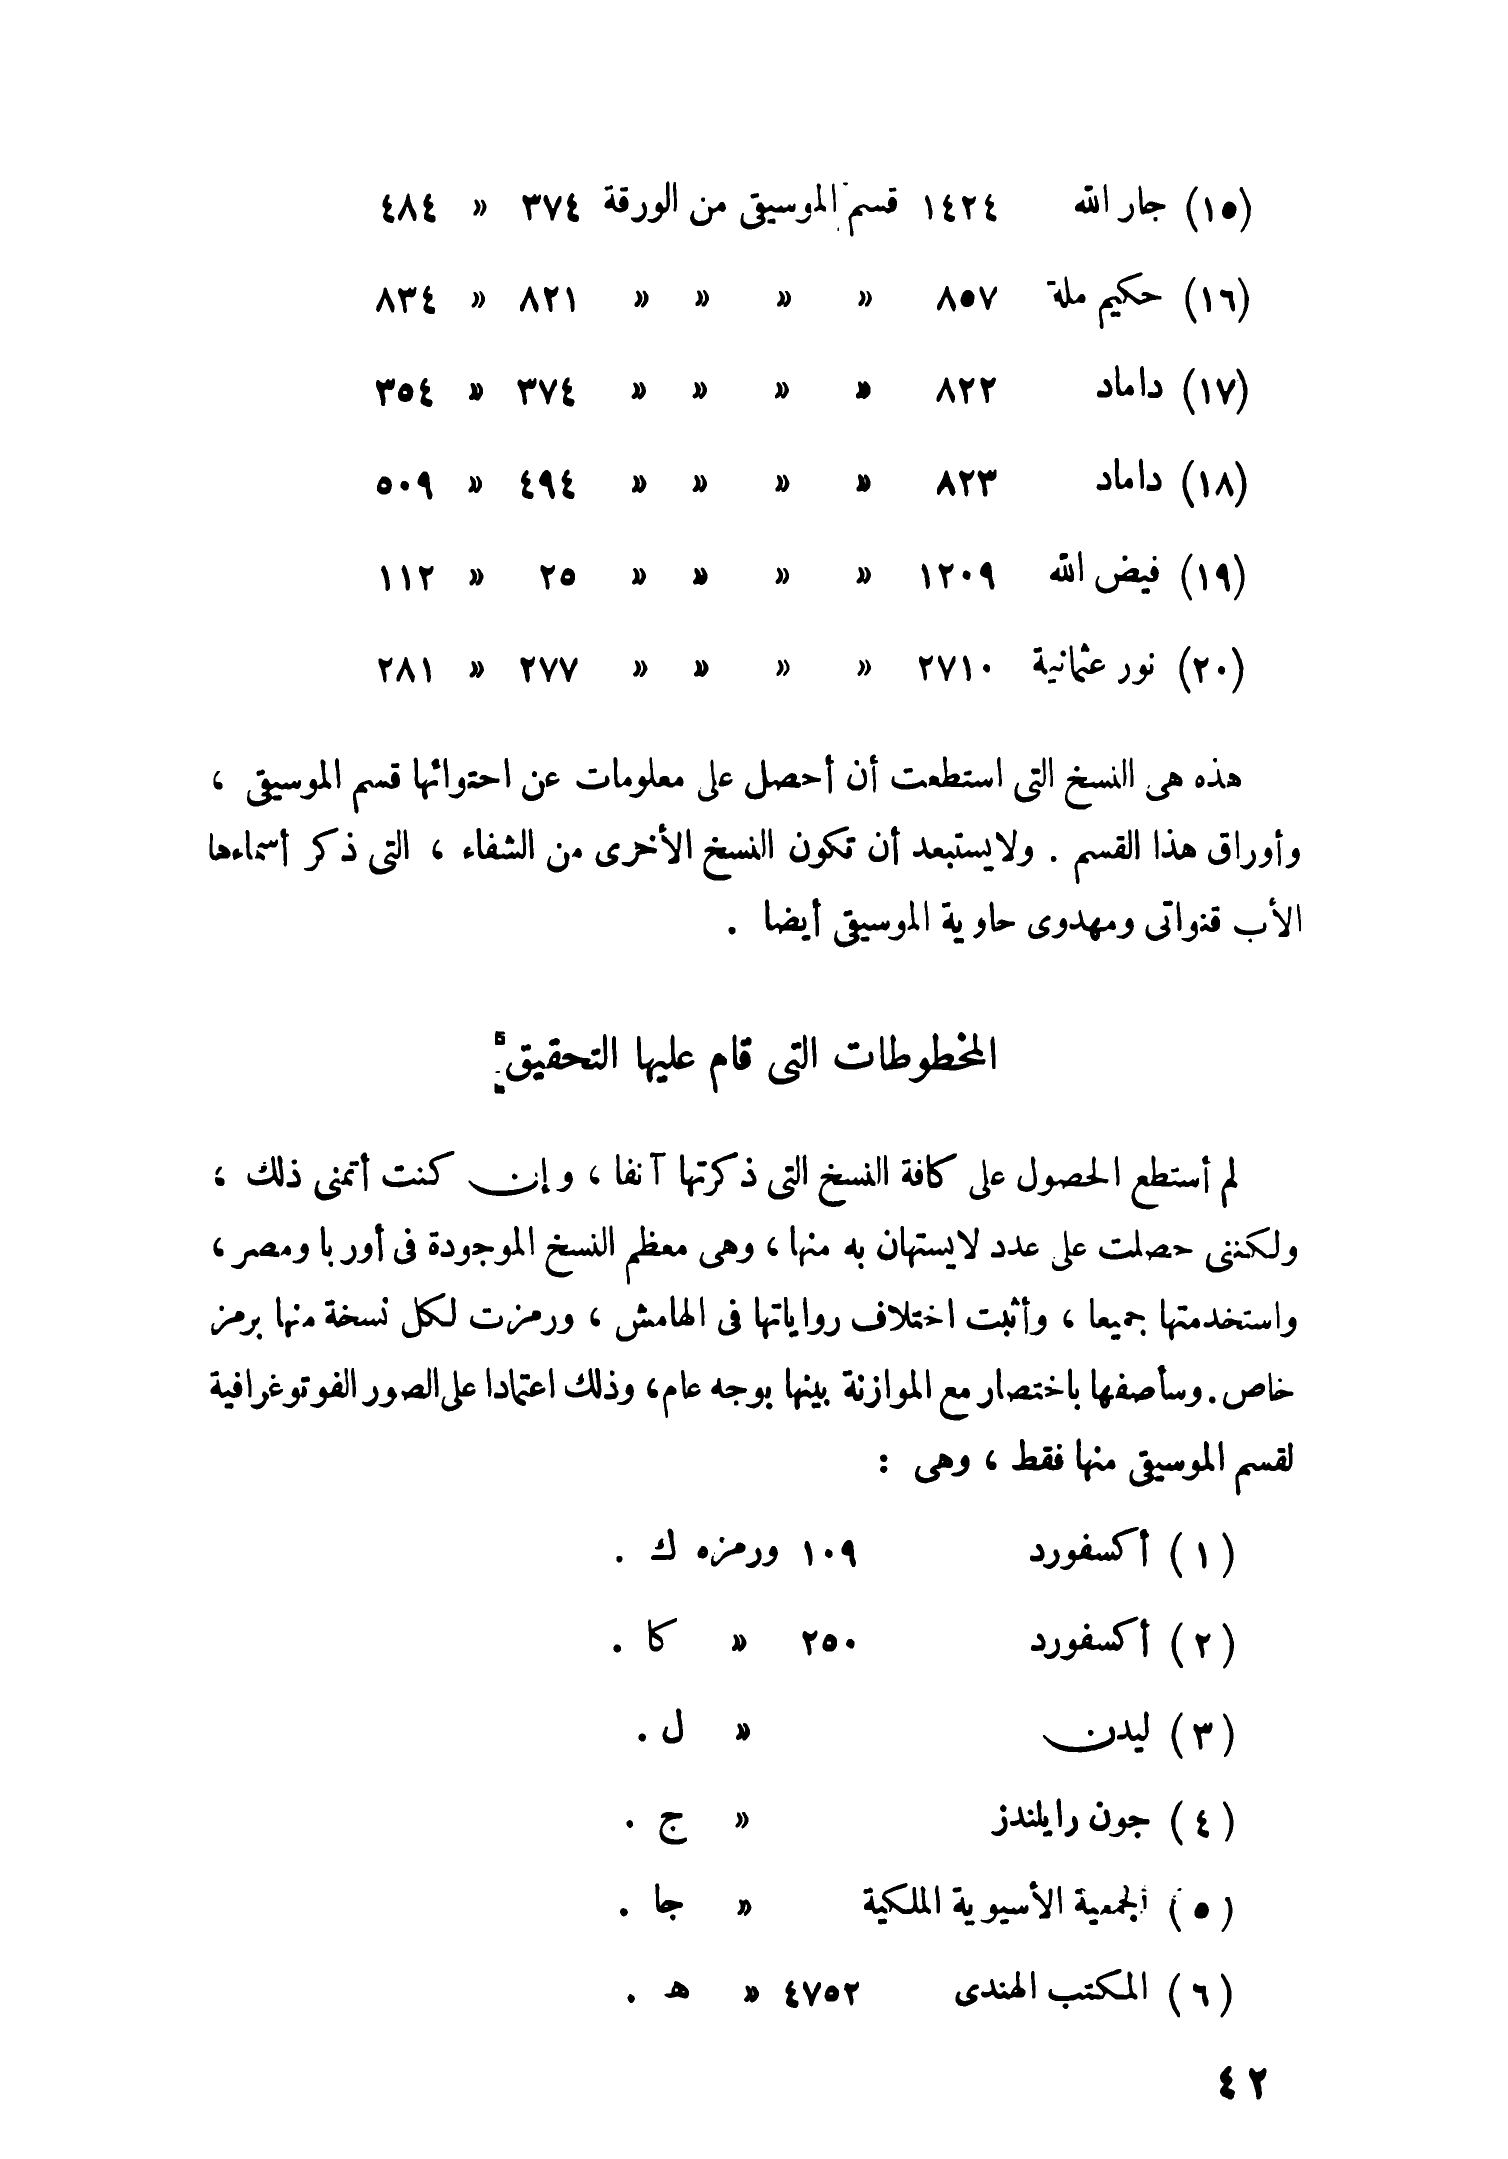 (١٥) جار الله ١٤٢٤ قسم الموسيقى من الورقة ٣٧٤ » ٤٨٤
(١٦) حكيم ملة ٨٥٧ » » » » ٨٢١ » ٨٣٤
(١٧) داماد ٨٢٢ » » » » ٣٧٤ » ٣٥٤
(١٨) داماد ٨٢٣ » » » » ٤٩٤ » ٥٠٩
(١٩) فيض الله ١٢٠٩ » » » » ٢٥ » ١١٢
(٢٠) نور عثمانية ٢٧١٠ » » » » ٢٧٧ » ٢٨١
هذه هى النسخ التى استطعت أن أحصل على معلومات عن احتوائها قسم الموسيقى ،
وأوراق هذا القسم . ولا يستبعد أن تكون النسخ الأخرى من الشفاء ، التى ذكر أسماءها
الأب قنواتى ومهدوى حاوية الموسيقى أيضا .
المخطوطات التى قام عليها التحقيق
لم أستطع الحصول على كافة النسخ التى ذكرتها آنفا ، وإن كنت أتمنى ذلك ،
ولكننى حصلت على عدد لا يستهان به منها ، وهى معظم النسخ الموجودة فى أوربا ومصر ،
واستخدمتها جميعا ، وأثبت اختلاف رواياتها فى الهامش ، ورمزت لكل نسخة منها برمز
خاص . وسأصفها باختصار مع الموازنة بينها بوجه عام ، وذلك اعتمادا على الصور الفوتوغرافية
لقسم الموسيقى منها فقط ، وهى :
( ١ ) أكسفورد ١٠٩ ورمزه ك .
( ٢ ) أكسفورد ٢٥٠ » كا .
( ٣ ) ليدن » ل .
( ٤ ) جون رايلندز » ج .
( ٥ ) الجمعية الأسيوية الملكية » جا .
( ٦ ) المكتب الهندى ٤٧٥٢ » ه .
٤٢